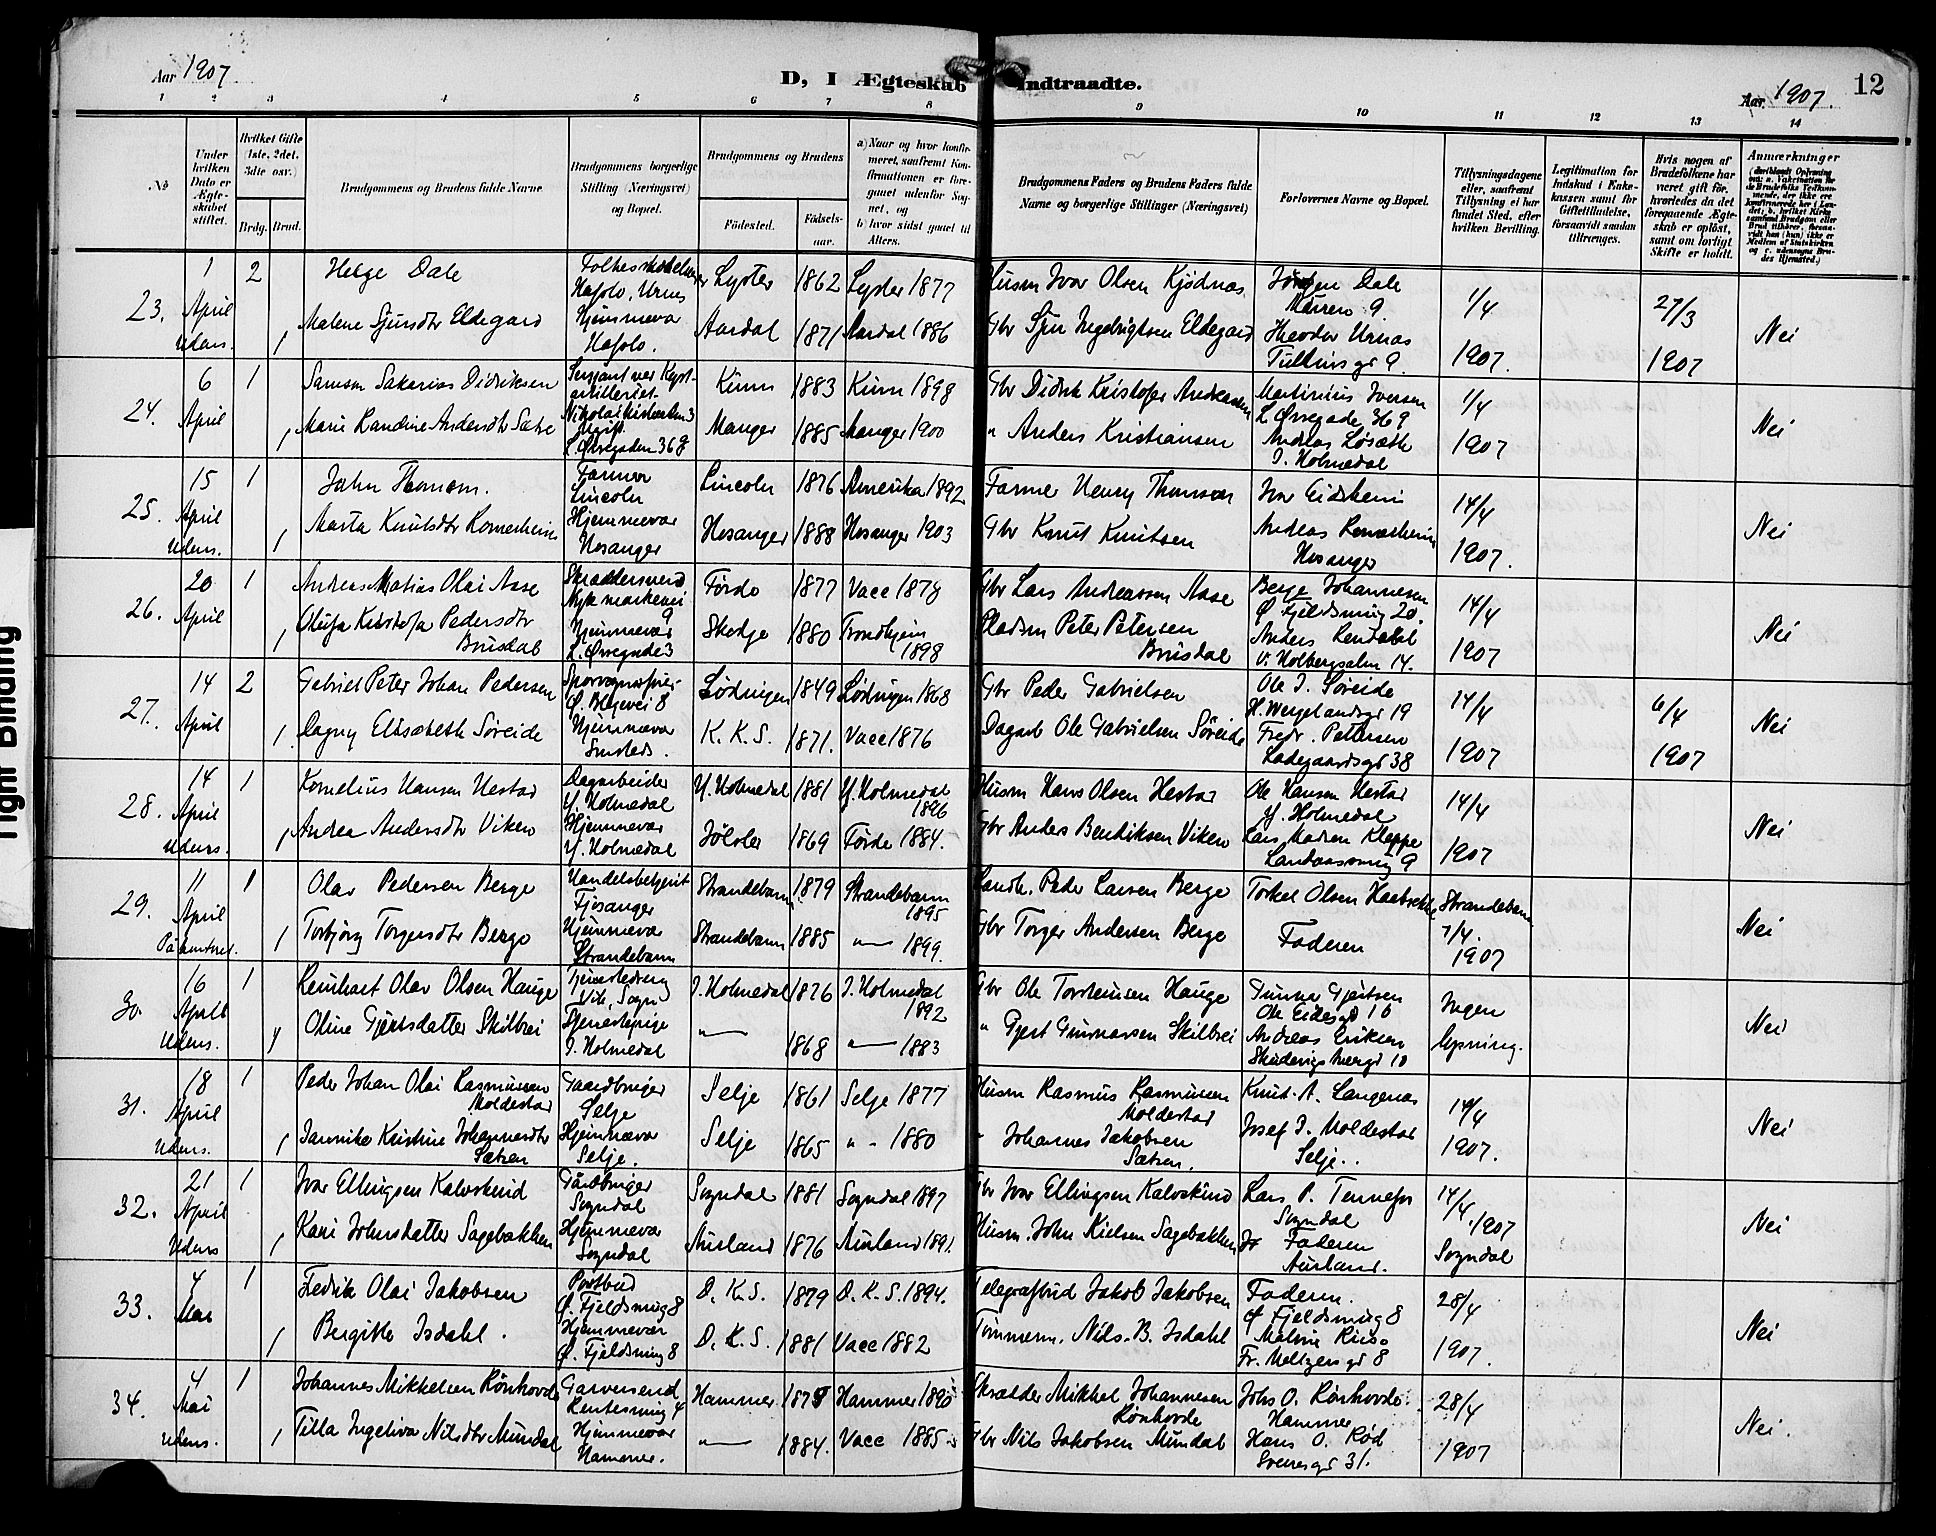 Aar 1907
D, I Ægteskab Indtraadte.
Aar 1907.
12
1 2 3 4 5 6 7 8 9 10 11 12 13 14
No
Under hvilken Dato er Ægteskabet stiftet.
Hvilket Gifte (1ste, 2det, 3die osv.)
Brdg. Brud.
Brudgommens og Brudens fulde Navne
Brudgommens borgerlige Stilling (Næringsvei) og Bopæl.
Brudgommens og Brudens
Födested.
Födselsaar.
a) Naar og hvor konfirmeret, saafremt Konfirmationen er foregaaet udenfor Sognet, og
b) hvor sidst gaaet til Alters.
Brudgommens Faders og Brudens Faders fulde Navne og borgerlige Stillinger (Næringsvei)
Forlovernes Navne og Bopæl.
Tillysningsdagene eller, saafremt Tillysning ei har fundet Sted, efter hvilken Bevilling.
Legitimation for Indskud i Enkekassen samt for Giftetilladelse, forsaavidt saadan tiltrænges.
Hvis nogen af Brudefolkene har været gift för, hvorledes da det foregaaende Ægteskab er oplöst, samt om lovligt Skifte er holdt.
Anmærkninger
23. 1 April Udens. 2 Helge Dale Hafslo, Urnes Lyster 1862 Lyster 1877 Husm Ivar Olsen Kjødnas Dale 9. 1/4 27/3
1 Malene Sjursdtr Eldegard Hjemmevær Hafslo. Aardal 1871 Aardal 1886 Gbr Sjur Ingebrigtsen Eldegard Urnas Tullinsgd 9. 1907. 1907 Nei
24. 6 April 1 Samson Sakarias Didriksen Sersjant ved Kyst- artilleriet. Kinn 1883 Kinn 1898 Gbr Didrik Kristofer Andreassen Martinius Iversen L. Øvregade 36 9 1/4
1 Marie Randine Andersdtr Sætre L. Øvregaden 36 9 Manger 1885 Manger 1900 " Anders Kristiansen Andreas Løseth I. Holmedal 1907 Nei
25. 15 April Udens. 1 John Thomson. Farmer Lincoln Lincoln 1876 Amerika 1892 Farmer Henry Thomson Ivar Eidsheim 14/4
1 Marta Knutsdtr Romarheim Hjemmevær Hosanger Hosanger 1888 Hosanger 1903 Gbr Knut Knutsen Andreas Romarheim Hosanger 1907. Nei
26. 20 April 1 Andreas Matias Olai Aase Skræddersvend 9 Førde 1877 Vacc 1878 Gbr Lars Andreassen Aase Berge Johannesen Ø. Fjeldsmug 20. 14/4
1 Olufa Kristofa Pedersdtr Brusdal Hjemmevær L. Øvregade 3 Skodje 1880 Trondhjem 1898 Pladsm Peter Petersen Brusdal Anders V. Holbergsalm 14. 1907 Nei
27. 14 April 2 Gabriel Peter Johan Pedersen 8 Lødingen 1849 Lødingen 1868 Gbr Peder Gabrielsen Ole I. Søreide H. Wergelandsgd 19 14/4 6/4
1. Dagny Elisabeth Søreide Hjemmevær Smsteds. K. K. S. 1871. Vacc 1876 Dagarb Ole Gabrielsen Søreide Fredr. Pettersen Ladegaardsgd 38 1907 1907 Nei
28. 14 April Udens. 1 Kornelius Hansen Hestad Dagarbeider Y. Holmedal Y. Holmedal 1881 Y. Holmedal 1896 Husm Hans Olsen Hestad Ole Hansen Hestad Y. Holmedal 14/4
1 Andrea Andersdtr Viken Hjemmevær Y. Holmedal Jølster 1869 Førde 1884. Gbr Anders Bendiksen Viken Lars Madsen Kleppe Landaasveien 9 1907 Nei
29. 11 April 1 Olav Pedersen Berge Handelsbetjent Fjøsanger Strandebarm 1879 Strandebarm 1895 Landh. Peder Larsen Berge Torkel Olsen Strandebarm
1 Torbjørg Torgersdtr Berge Hjemmevær Strandebarm Strandebarm 1885 " 1899. Gbr Torger Andersen Berge Faderen 7/4 1907 Nei
30. 16 April Udens. 1 Reinhart Olav Olsen Hauge Vik, Sogn I. Holmedal 1876 I. Holmedal 1892 Gbr Ole Torsteinsen Hauge Gunnar Gjertsen Ole Eidesgd 10 Ingen
Oline Gjertsdatter Skilbrei Tjenestepige I. Holmedal " 1868 " 1883 " Gjert Gunnarsen Skilbrei Andreas Eriksen 10 lysning. Nei
31. 18 April Udens. 1 Peder Johan Olai Rasmussen Moldestad Gaardbruger Selje Selje 1861 Selje 1877 Husm Rasmus Rasmussen Moldestad Knut A. Langenas 14/4
1 Jannike Kristine Johannesdtr Sætren Hjemmevær Selje. Selje 1865 " 1880 " Johannes Jakobsen Sætren. Josef I. Moldestad Selje. 1907. Nei
32. 21 April Udens 1 Ivar Ellingsen Kalvskind Gårdbruger Sogndal Sogndal 1881 Sogndal 1897 Gbr Ivar Ellingsen Kalvskind Lars P. Sogndal 14/4 1907
1 Kari Johnsdatter Sagebakken Hjemmevær Sogndal Aurland 1876 Aurland 1891. Husm. John Nielsen Sagebakken Faderen Aurland. Sogndal Nei
33. 4 Mai 1 Fredrik Olai Jakobsen Postbud Ø. Fjeldsmug 8 D. K. S. 1879 D. K. S. 1894. Telegrafbud Jakob Jakobsen Faderen. Ø Fjeldsmug 8 28/4
1 Bergitte Isdahl. Hjemmevær Ø. Fjeldsmug 8 D. K. S. 1881 Vacc 1882 Tømmerm. Nils B. Isdahl Fr. Meltzersgd 8 1907. Nei
34. 4 Mai Udens. 1 Johannes Mikkelsen Rønhovde Garversvend 4 Hammer 1875 Hammer 1890 Skrædder Mikkel Johannesen Rønhovde Johs O. Rønhovde. Hammer 28/4
1 Tilla Ingeliva Nilsdtr Mundal Hjemmevær Hammer. " 1884. Vacc 1885 Gbr Nils Jakobsen Mundal Hans O. Rød Sverresgd 31. 1907 Nei.
Tight Binding